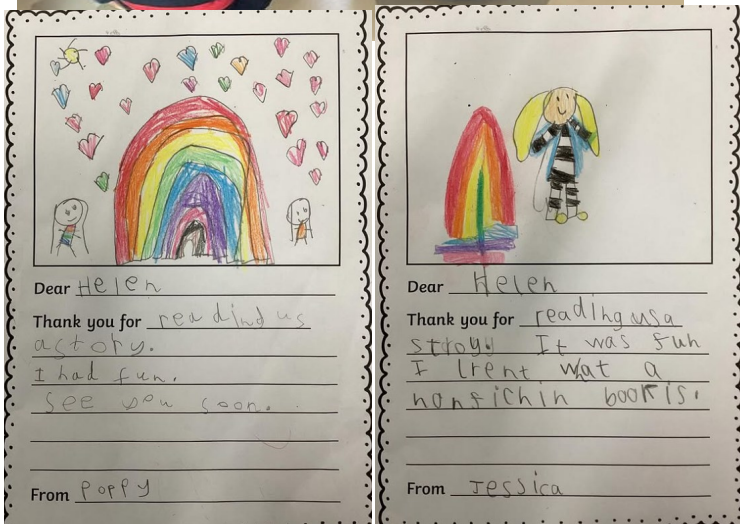 Dear Helen
Thank you for readind us
a story.
I had fun.
See you soon.
From Poppy
Dear Helen
Thank you for reading us a
stroy. It was fun
I lrent wat a
nonfichin book is.
From Jessica